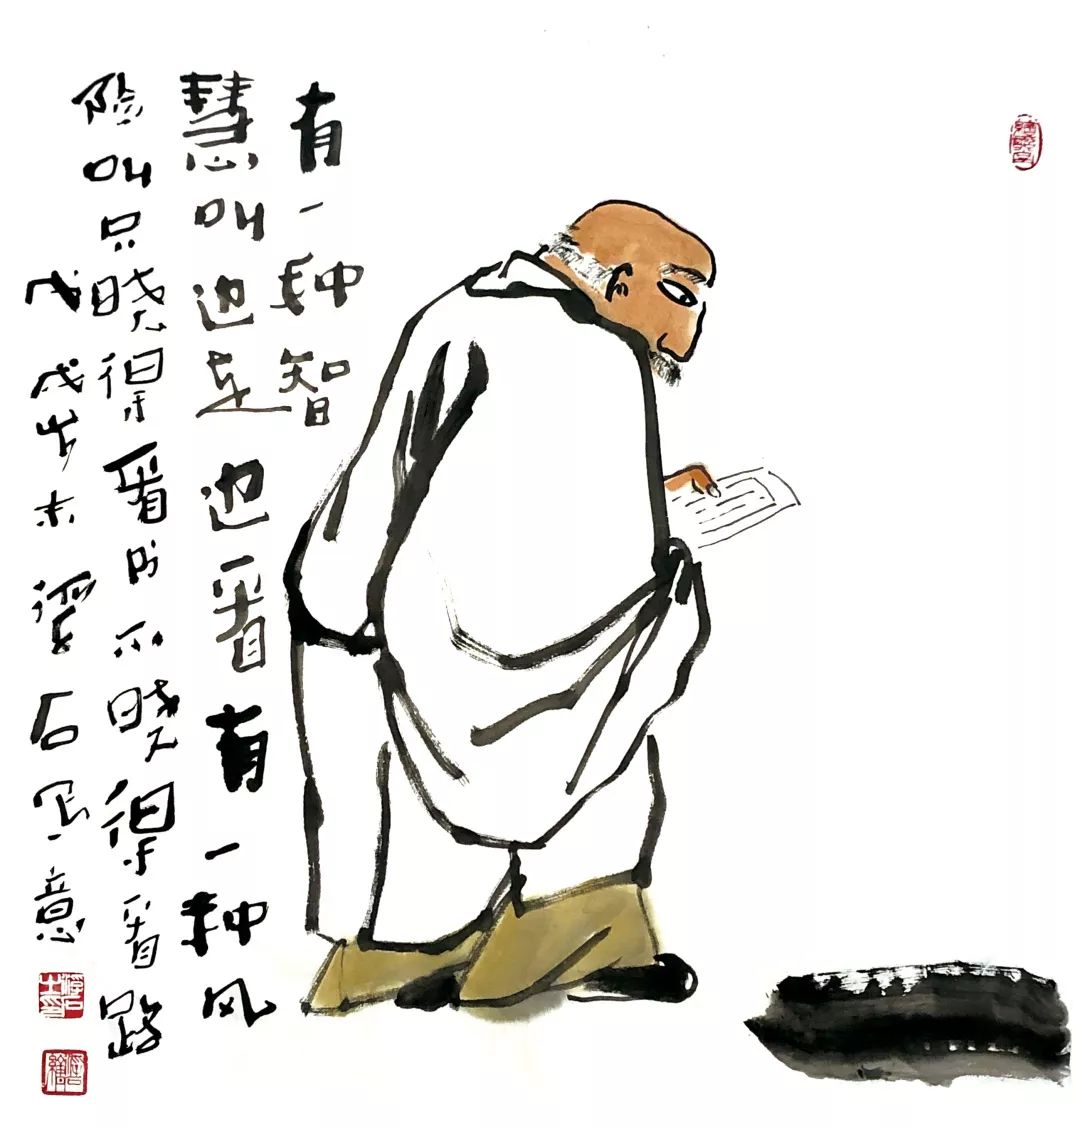 有一种智
慧叫边走边看有一种风
险叫只晓得看书不晓得看路
戊戌岁末浮石写意